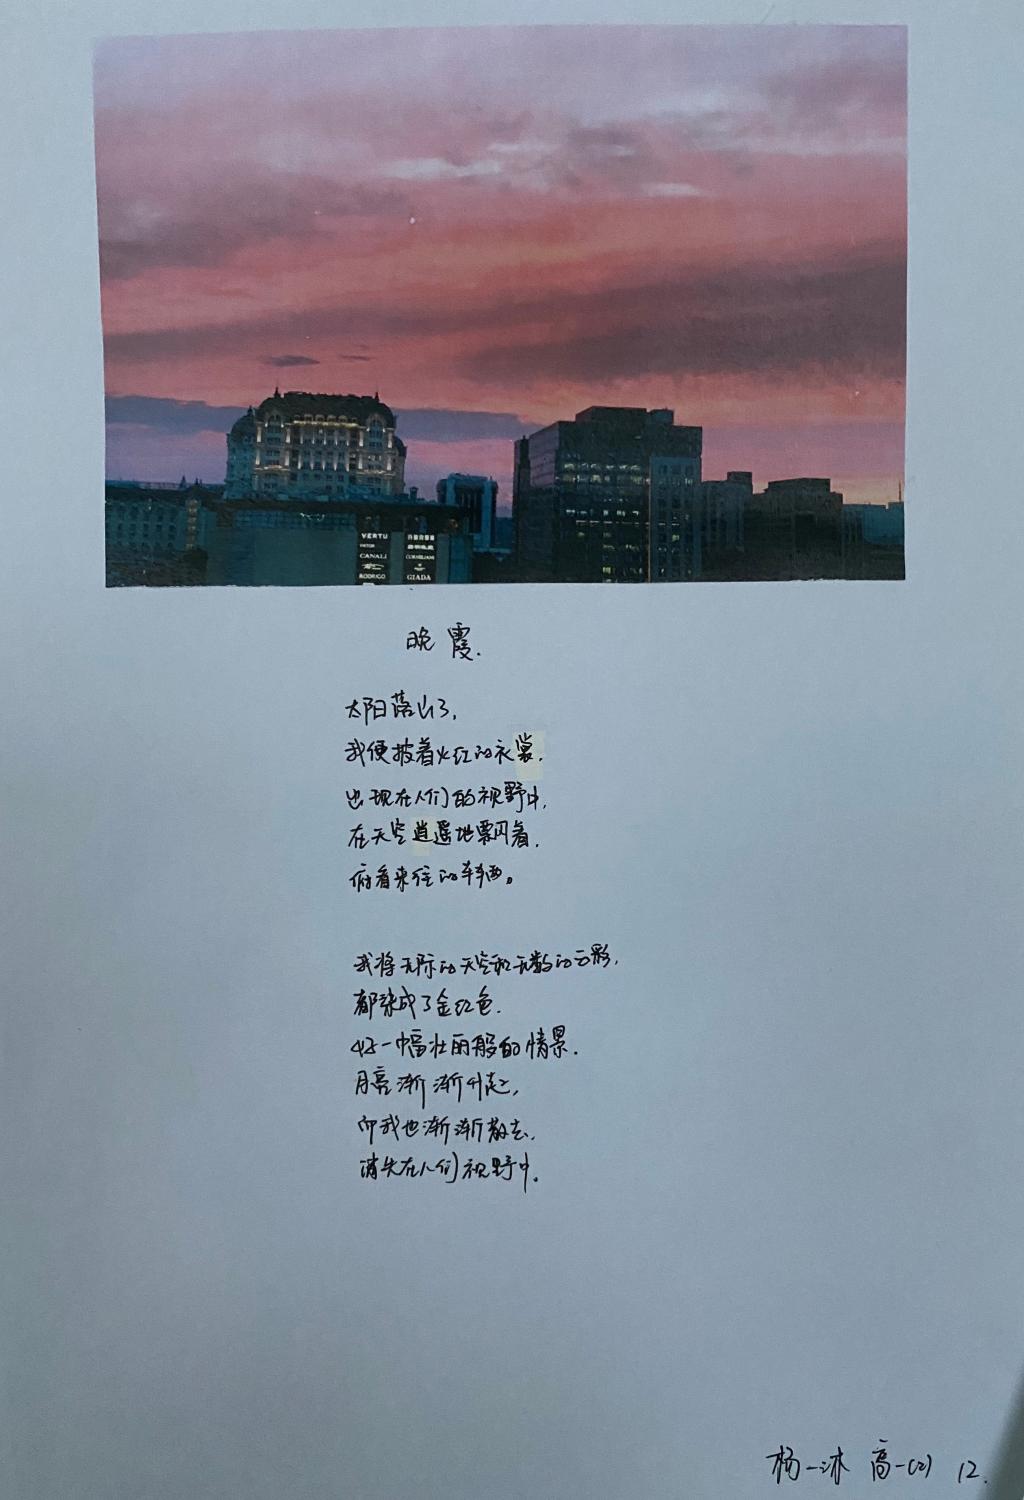 VERTU
CANALI
RODRIGO
CORNELIANI
GIADA
晚霞.
太阳落山了,
我便披着火红的衣裳,
出现在人们的视野中,
在天空逍遥地飘着,
俯看来往的车辆。
我将无际的天空和无数的云彩,
都染成了金红色.
好一幅壮丽般的情景.
月亮渐渐升起,
而我也渐渐散去,
消失在人们视野中。
杨一沐 高一(2) 12.